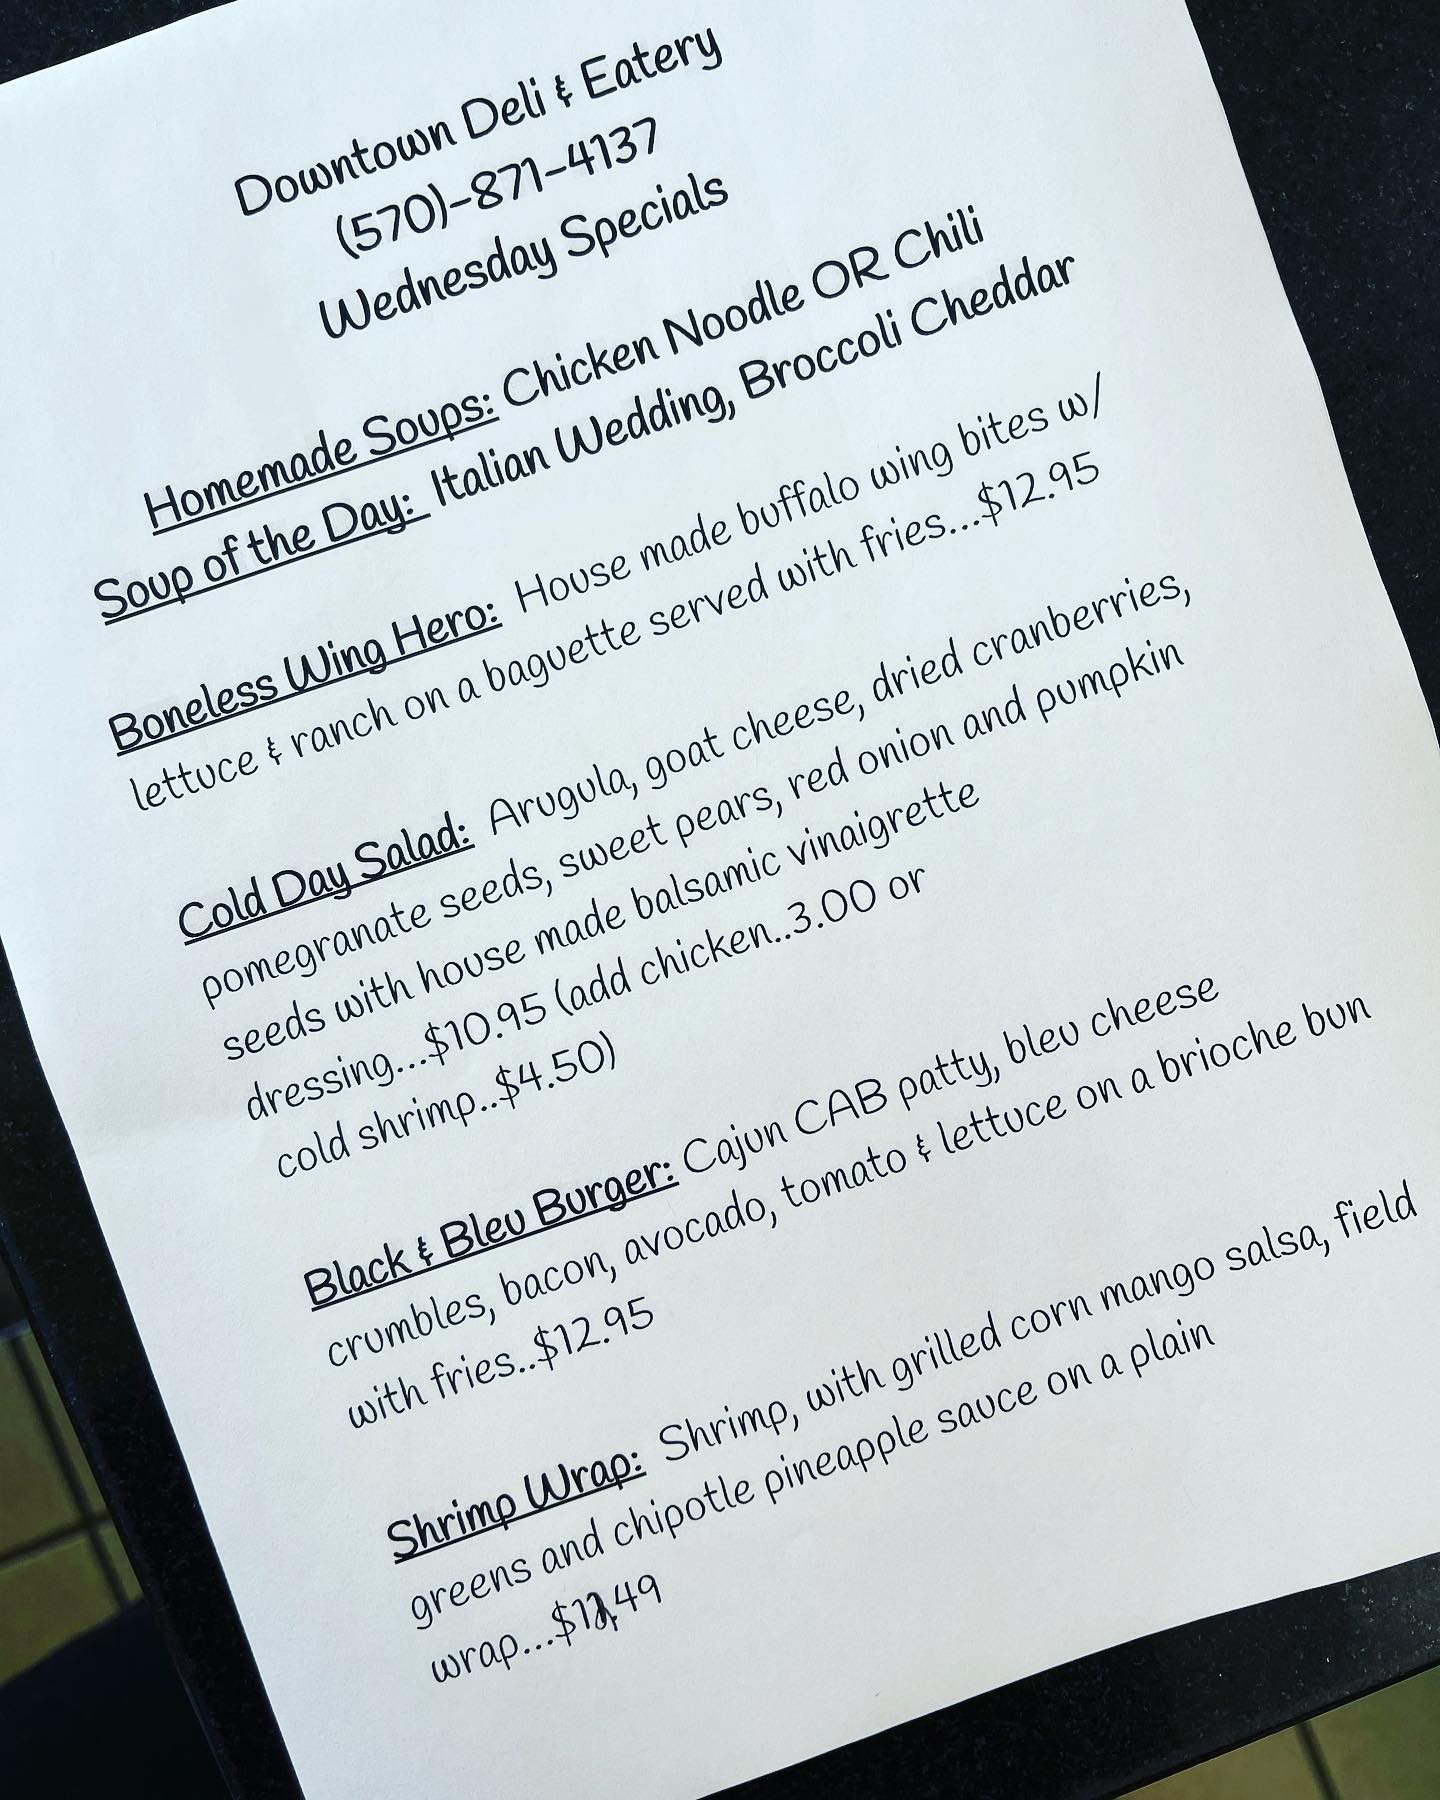 Downtown Deli & Eatery
(570)-871-4137
Wednesday Specials
Homemade Soups: Chicken Noodle OR Chili
Soup of the Day: Italian Wedding, Broccoli Cheddar
Boneless Wing Hero: House made buffalo wing bites w/
lettuce & ranch on a baguette served with fries...$12.95
Cold Day Salad: Arugula, goat cheese, dried cranberries,
pomegranate seeds, sweet pears, red onion and pumpkin
seeds with house made balsamic vinaigrette
dressing...$10.95 (add chicken..3.00 or
cold shrimp..$4.50)
Black & Bleu Burger: Cajun CAB patty, bleu cheese
crumbles, bacon, avocado, tomato & lettuce on a brioche bun
with fries..$12.95
Shrimp Wrap: Shrimp, with grilled corn mango salsa, field
greens and chipotle pineapple sauce on a plain
wrap...